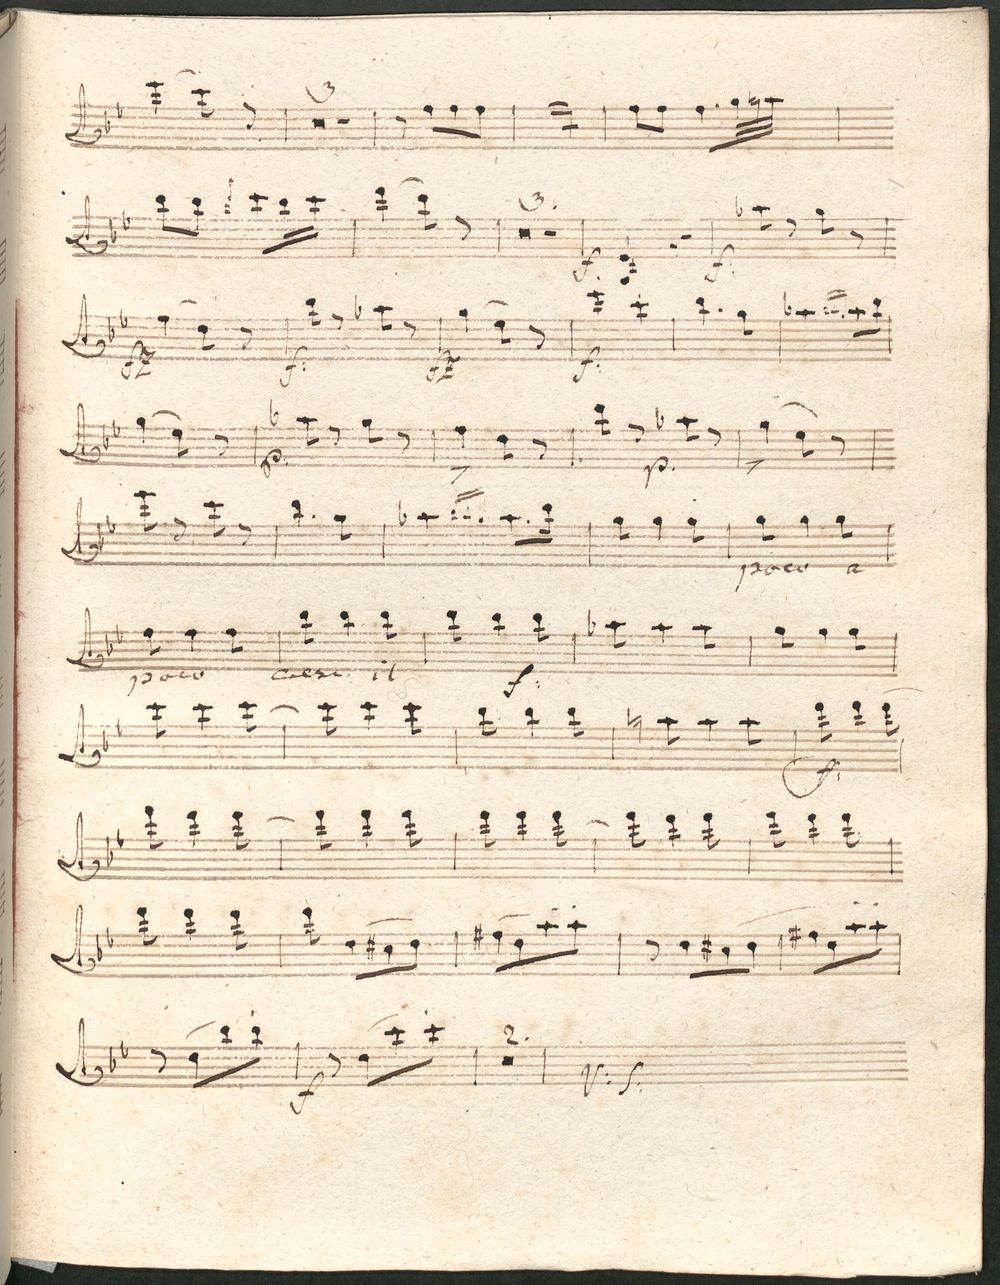 3
3.
f. f.
fz f: fz f:
p. p.
poco a
poco cres: il f:
f:
f 2. V: S: